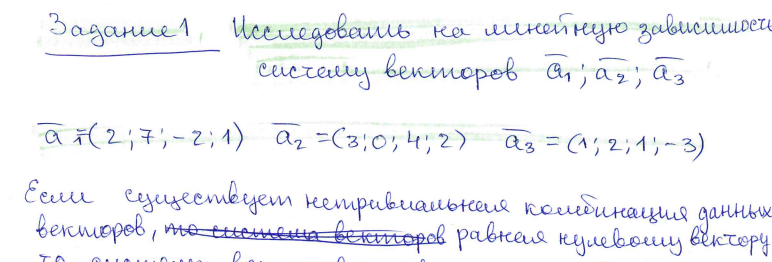 Задание 1 Исследовать на линейную зависимость
систему векторов a̅₁; a̅₂; a̅₃
a̅₁=(2;7;-2;1) a̅₂=(3;0;4;2) a̅₃=(1;2;1;-3)
Если существует нетривиальная комбинация данных
векторов, то система векторов равная нулевому вектору